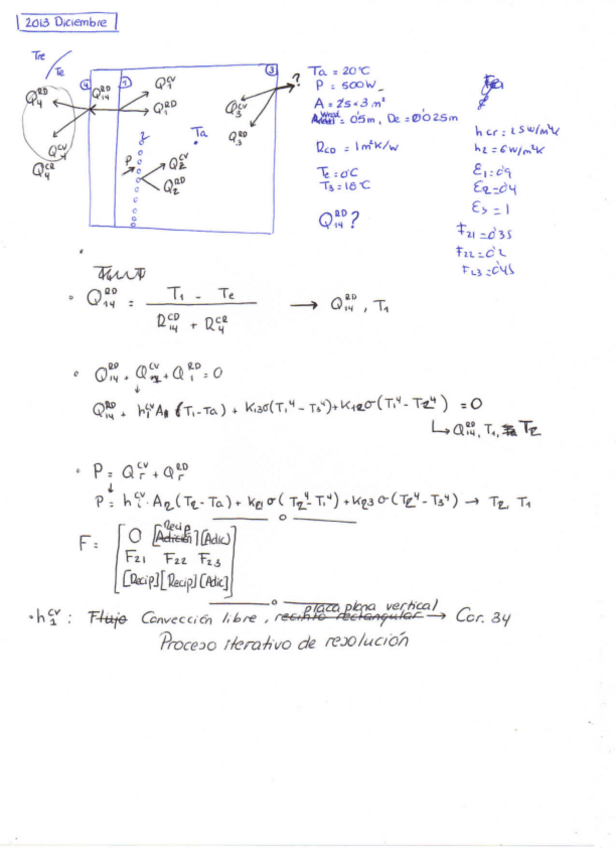 2013 Diciembre
Te
Q4^RD
Q4^CR
4
Q14^RD
1
Q1^CV
Q1^RD
P
2
Q2^CV
Q2^RD
Ta
3
Q3^CV
Q3^RD
?
Ta = 20°C
P = 500W
A = 2'5 × 3 m²
= 0'5m, De = 0'025m
RCD = 1m²K/W
Te = 0°C
T3 = 18°C
Q14^RD ?
hcr = 25 W/m²K
h2 = 6 W/m²K
ε1 = 0'9
ε2 = 0'4
ε3 = 1
F21 = 0'35
F22 = 0'2
F23 = 0'45
• Q14^RD = (T1 - Te) / (R14^CD + R4^CR) → Q14^RD, T1
• Q14^RD + Q1^CV + Q1^RD = 0
Q14^RD + h1^CV A1 (T1-Ta) + K13σ(T1⁴-T3⁴) + K12σ(T1⁴-T2⁴) = 0
↳ Q14^RD, T1, T2
• P = Qr^CV + Qr^RD
P = h2^CV · A2 (T2-Ta) + K21 σ (T2⁴-T1⁴) + K23 σ (T2⁴-T3⁴) → T2, T1
F = [ 0 [Recip] [Adic]
F21 F22 F23
[Recip] [Recip] [Adic] ]
• h1^CV : Flujo Convección libre, recinto rectangular placa plana vertical → Cor. 34
Proceso iterativo de resolución